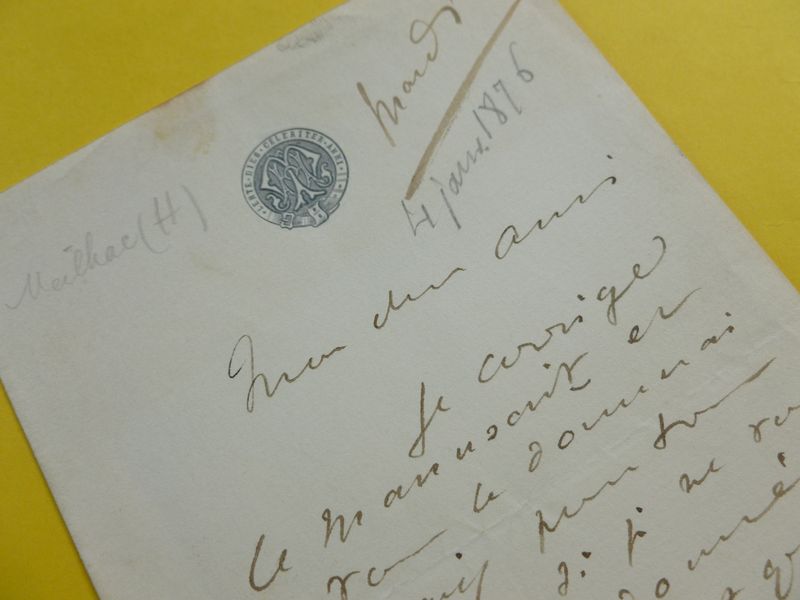 Mardi
4 janv. 1876
LENTE · DIES · CELERITER · ANNI
Meilhac (H)
Mon cher ami
Je corrige
le manuscrit et
vous le donnerai
pour
si je ne
donné